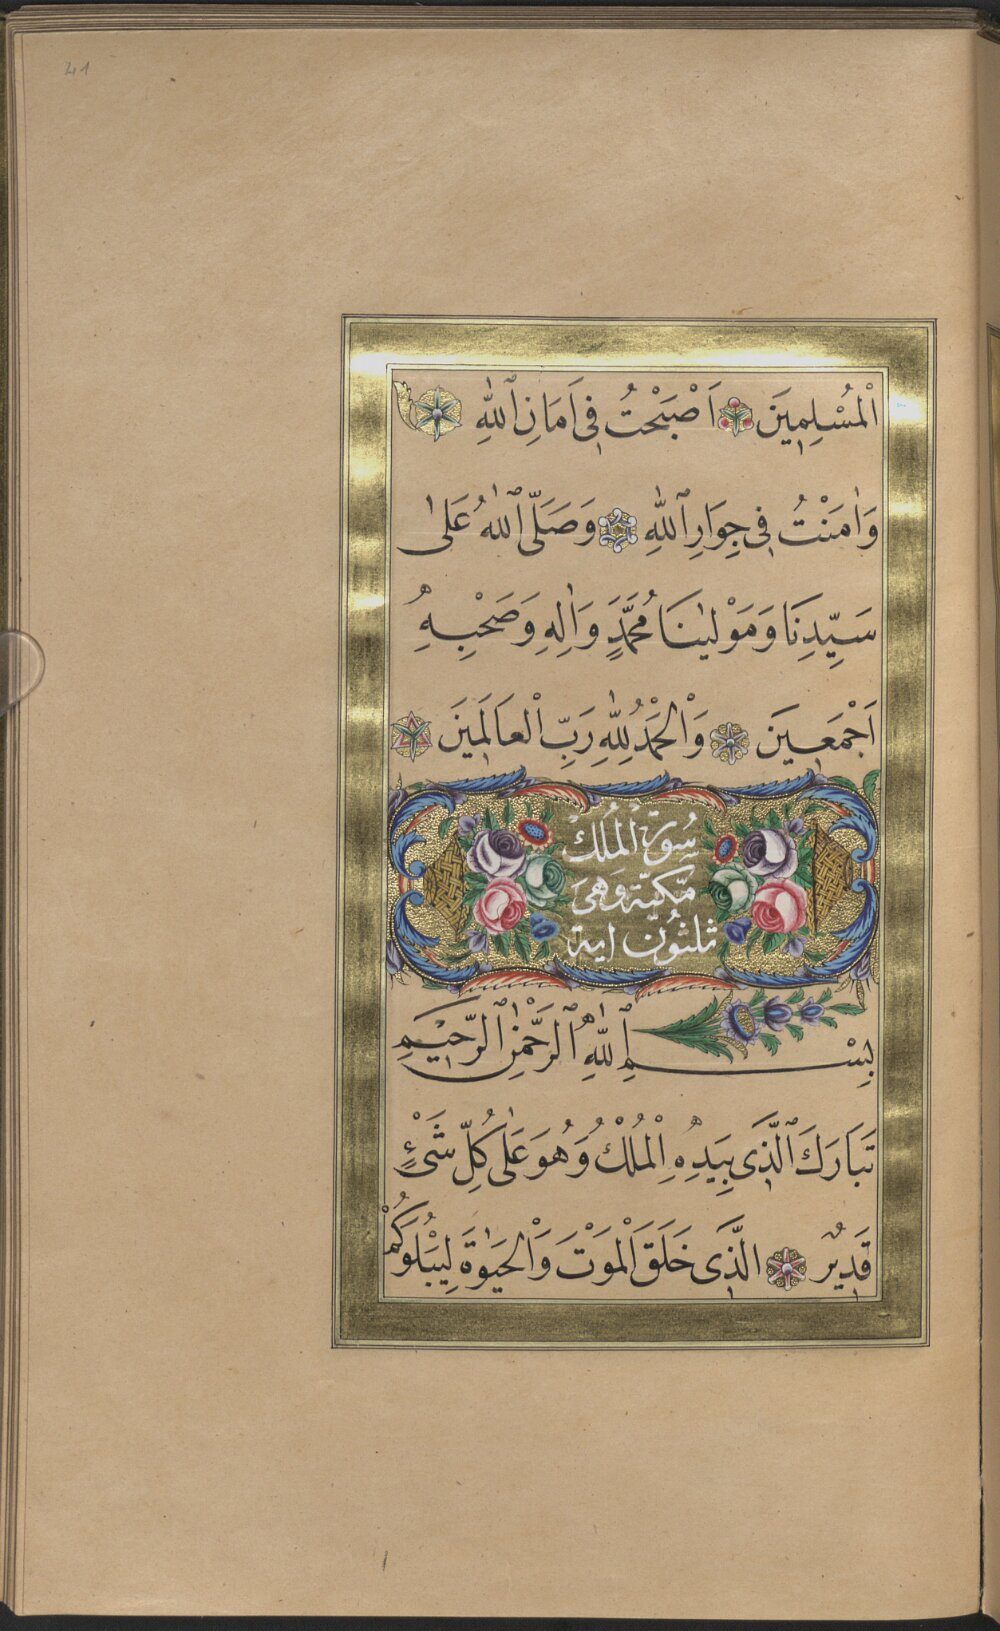 41
اَلْمُسْلِمِينَ اَصْبَحْتُ فِى اَمَانِ ٱللّٰهِ
وَاٰمَنْتُ فِى جِوَارِ ٱللّٰهِ وَصَلَّى ٱللّٰهُ عَلٰى
سَيِّدِنَا وَمَوْلٰينَا مُحَمَّدٍ وَاٰلِهِ وَصَحْبِهِ
اَجْمَعِينَ وَالْحَمْدُ لِلّٰهِ رَبِّ الْعَالَمِينَ
سُورَةُ الْمُلْكِ
مَكِّيَّة وَهِىَ
ثَلٰثُونَ اٰيَة
بِسْمِ ٱللّٰهِ ٱلرَّحْمٰنِ ٱلرَّحِيمِ
تَبَارَكَ ٱلَّذِى بِيَدِهِ الْمُلْكُ وَهُوَ عَلٰى كُلِّ شَىْءٍ
قَدِيرٌ الَّذِى خَلَقَ الْمَوْتَ وَالْحَيٰوةَ لِيَبْلُوَكُمْ